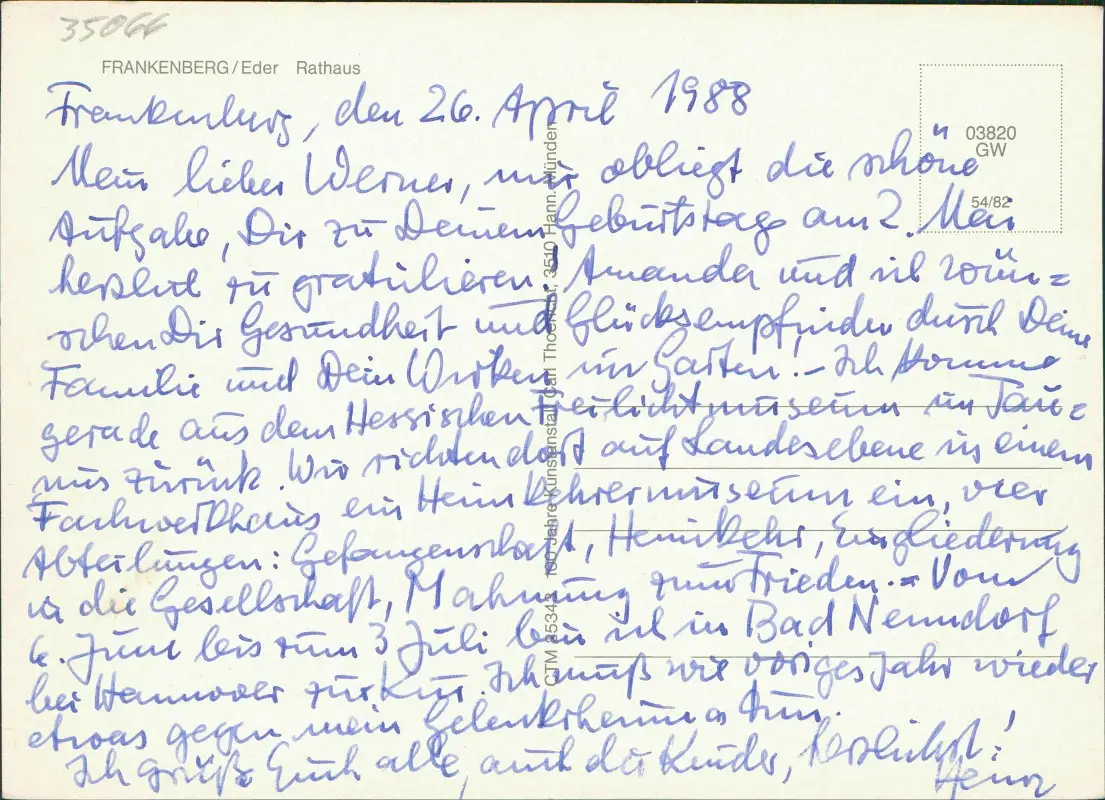 35066
FRANKENBERG/Eder Rathaus
03820
GW
54/82
Frankenberg, den 26. April 1988
Mein lieber Werner, mir obliegt die schöne
Aufgabe, Dir zu Deinem Geburtstage am 2. Mai
herzlich zu gratulieren! Amanda und ich wün=
schen Dir Gesundheit und Glücksempfinden durch Deine
Familie und Dein Wirken im Garten! – Ich komme
gerade aus dem Hessischen Freilichtmuseum im Tau=
nus zurück. Wir richten dort auf Landesebene in einem
Fachwerkhaus ein Heimkehrermuseum ein, vier
Abteilungen: Gefangenschaft, Heimkehr, Eingliederung
in die Gesellschaft, Mahnung zum Frieden. = Vom
6. Juni bis zum 3 Juli bin ich in Bad Nenndorf
bei Hannover zur Kur. Ich muß wie voriges Jahr wieder
etwas gegen mein Gelenkrheuma tun.
Ich grüße Euch alle, auch die Kinder, herzlichst!
CTM 35343 100 Jahre Kunstanstalt Carl Thoericht, 3510 Hann. Münden